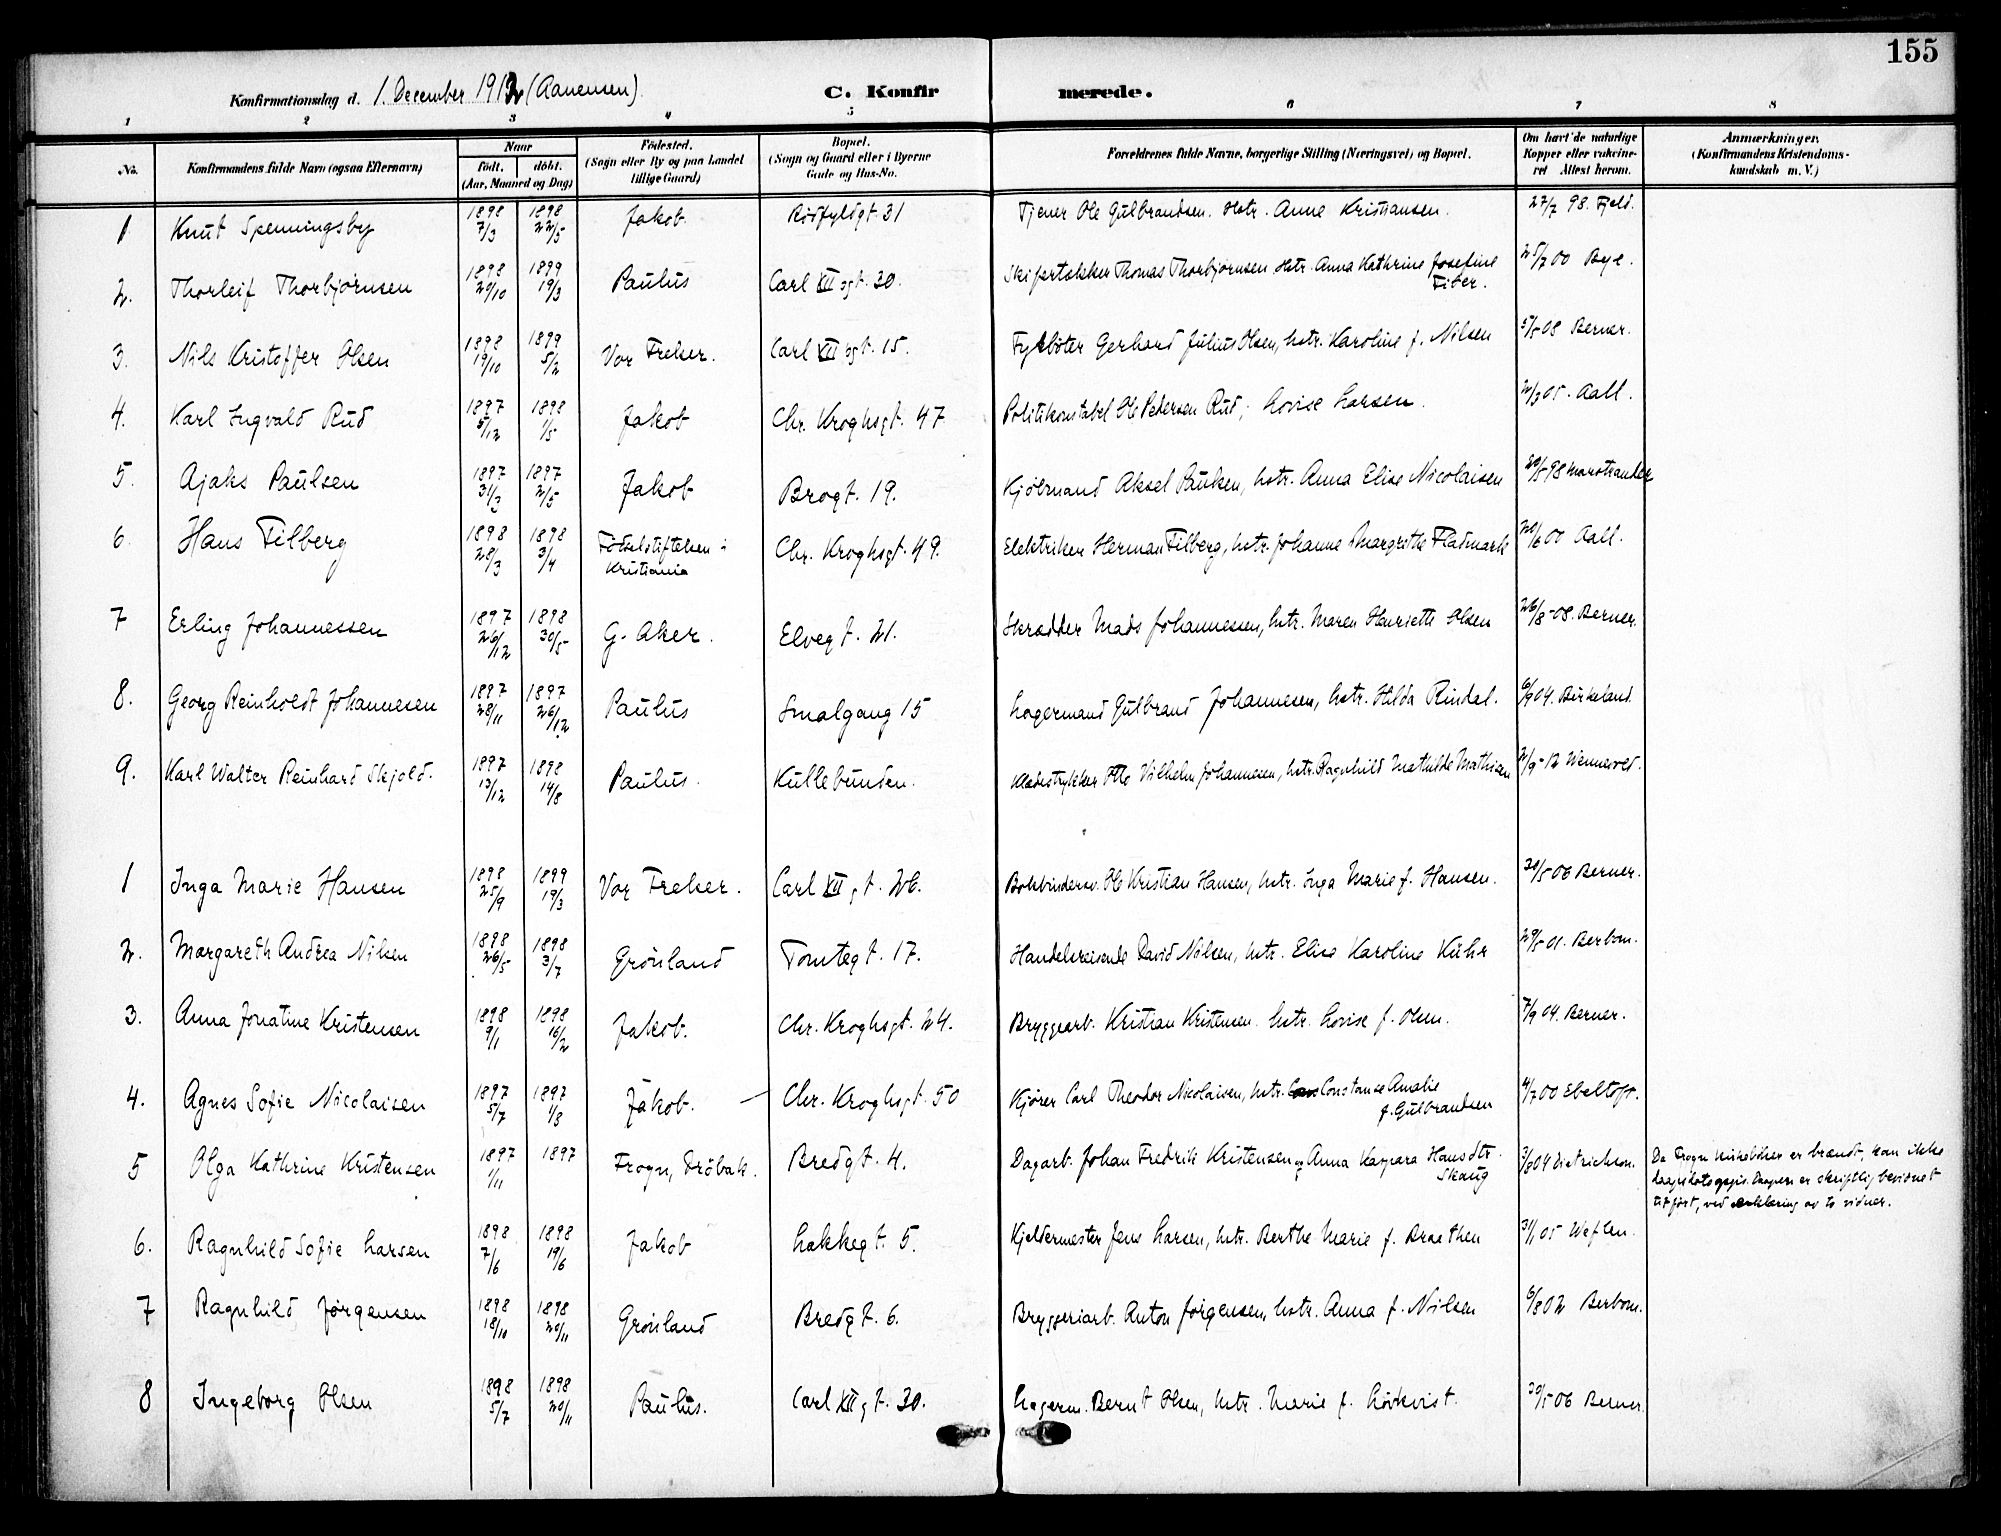 155
Konfirmationsdag d. 1. December 1912 (Aanensen)
C. Konfirmerede.
1 2 3 4 5 6 7 8
No. Konfirmandens fulde Navn (ogsaa Efternavn) Naar født, døbt. (Aar, Maaned og Dag) Fødested. (Sogn eller By og paa Landet tillige Gaard) Bopæl. (Sogn og Gaard eller i Byerne Gade og Hus-No. Forældrenes fulde Navne, borgerlige Stilling (Næringsvei) og Bopæl. Om havt de naturlige Kopper eller vakcineret Attest herom. Anmærkninger. (Konfirmandens Kristendomskundskab m. V.)
1 Knut Spenningsby 1898 7/3 1898 22/5 Jakob Rødfyldgt. 31 Tjener Ole Gulbrandsen. Hstr. Anne Kristiansen. 27/7 98. Fjeld.
2. Thorleif Thorbjørnsen 1898 20/10 1899 19/3 Paulus Carl XII sgt. 30. Thomas Thorbjørnsen Hstr. Anna Kathrine Josefine 25/7 00 Bye.
3. Nils Kristoffer Olsen 1898 19/10 1899 5/2 Vor Frelser. Carl XII sgt. 15. Fyrbøter Gerhard Julius Olsen, hstr. Karoline f. Nilsen 5/5 08 Berner.
4. Karl Ingvald Rud 1897 5/12 1898 1/5 Jakob Chr. Kroghsgt. 47 Politikonstabel Ole Pedersen Rud, Lovise Larsen. 2/3 05. Aall.
5. Ajaks Paulsen 1897 31/3 1897 2/5 Jakob Brogt. 19. Aksel Paulsen, hstr. Anna Elise Nicolaisen 20/5 98 Marstrander
6. Hans Filberg 1898 28/3 1898 3/4 Fødselsstiftelsen i Kristiania Chr. Kroghsgt. 49. Elektriker Herman Filberg, hstr. Johanne Margrethe Fladmark 20/6 00 Aall.
7 Erling Johannessen 1897 26/12 1898 30/5 G. Aker. Elvegt. 21. Skrædder Mads Johannessen, hstr. Maren Henriette Olsen 26/8-08. Berner.
8. Georg Reinholdt Johannesen 1897 28/11 1897 26/12 Paulus Smalgang 15 Lagermand Gulbrand Johannesen, hstr. Hilda Rindal. 6/9 04. Birkeland.
9. Karl Walter Reinhard Skjold. 1897 13/12 1898 14/8 Paulus. Kullebunden. Klædestrykker Otto Vilhelm Johannesen, hstr. Ragnhild Mathilde Mathisen 2/9-12 Wennevold.
1 Inga Marie Hansen 1898 25/9 1899 19/3 Vor Frelser. Carl XII gt. 26. Bokbindersv. Ole Kristian Hansen, hstr. Inga Marie f. Hansen. 30/5 06 Berner.
2. Margareth Andrea Nilsen 1898 26/5 1898 3/7 Grönland Tomtegt. 17. Handelsreisende David Nilsen, hstr. Elise Karoline 29/5 01. Berbom.
3. Anna Jonatine Kristensen 1898 9/1 1898 16/2 Jakob. Chr. Kroghsgt. 24. Bryggearb. Kristian Kristensen hstr. Lovise f. Olsen. 7/9 04. Berner.
4. Agnes Sofie Nicolaisen 1897 5/7 1897 1/8 Jakob. Chr. Kroghsgt. 50 Kjører Carl Theodor Nicolaisen, hstr. Constance Amalie f. Gulbrandsen 4/7 00 Ebeltoft.
5 Olga Kathrine Kristensen 1897 1/11 1897 Frogn, Dröbak. Bredgt. 4. Dagarb. Johan Fredrik Kristensen og Anna Kaspara Hansdtr. Skaug 3/8 04 Dietrichson. Da Frogn kirkebøker er brændt, kan ikke
tilført, ved erklæring av to vidner.
6. Ragnhild Sofie Larsen 1898 7/6 1898 19/6 Jakob Lakkegt. 5. Kjeldermester Jens Larsen, hstr. Berthe Marie f. Braathen 31/1 05 Weflen.
7 Ragnhild Jørgensen 1898 18/10 1898 20/11 Grönland Bredgt. 6. Bryggeriarb. Anton Jørgensen, hstr. Anna f. Nilsen 6/8 02 Berbom.
8 Ingeborg Olsen 1898 5/7 1898 20/11 Paulus. Carl XII gt. 30. Lagerm. Bernt Olsen, hstr. Marie f. Løvkvist. 30/5 06 Berner.